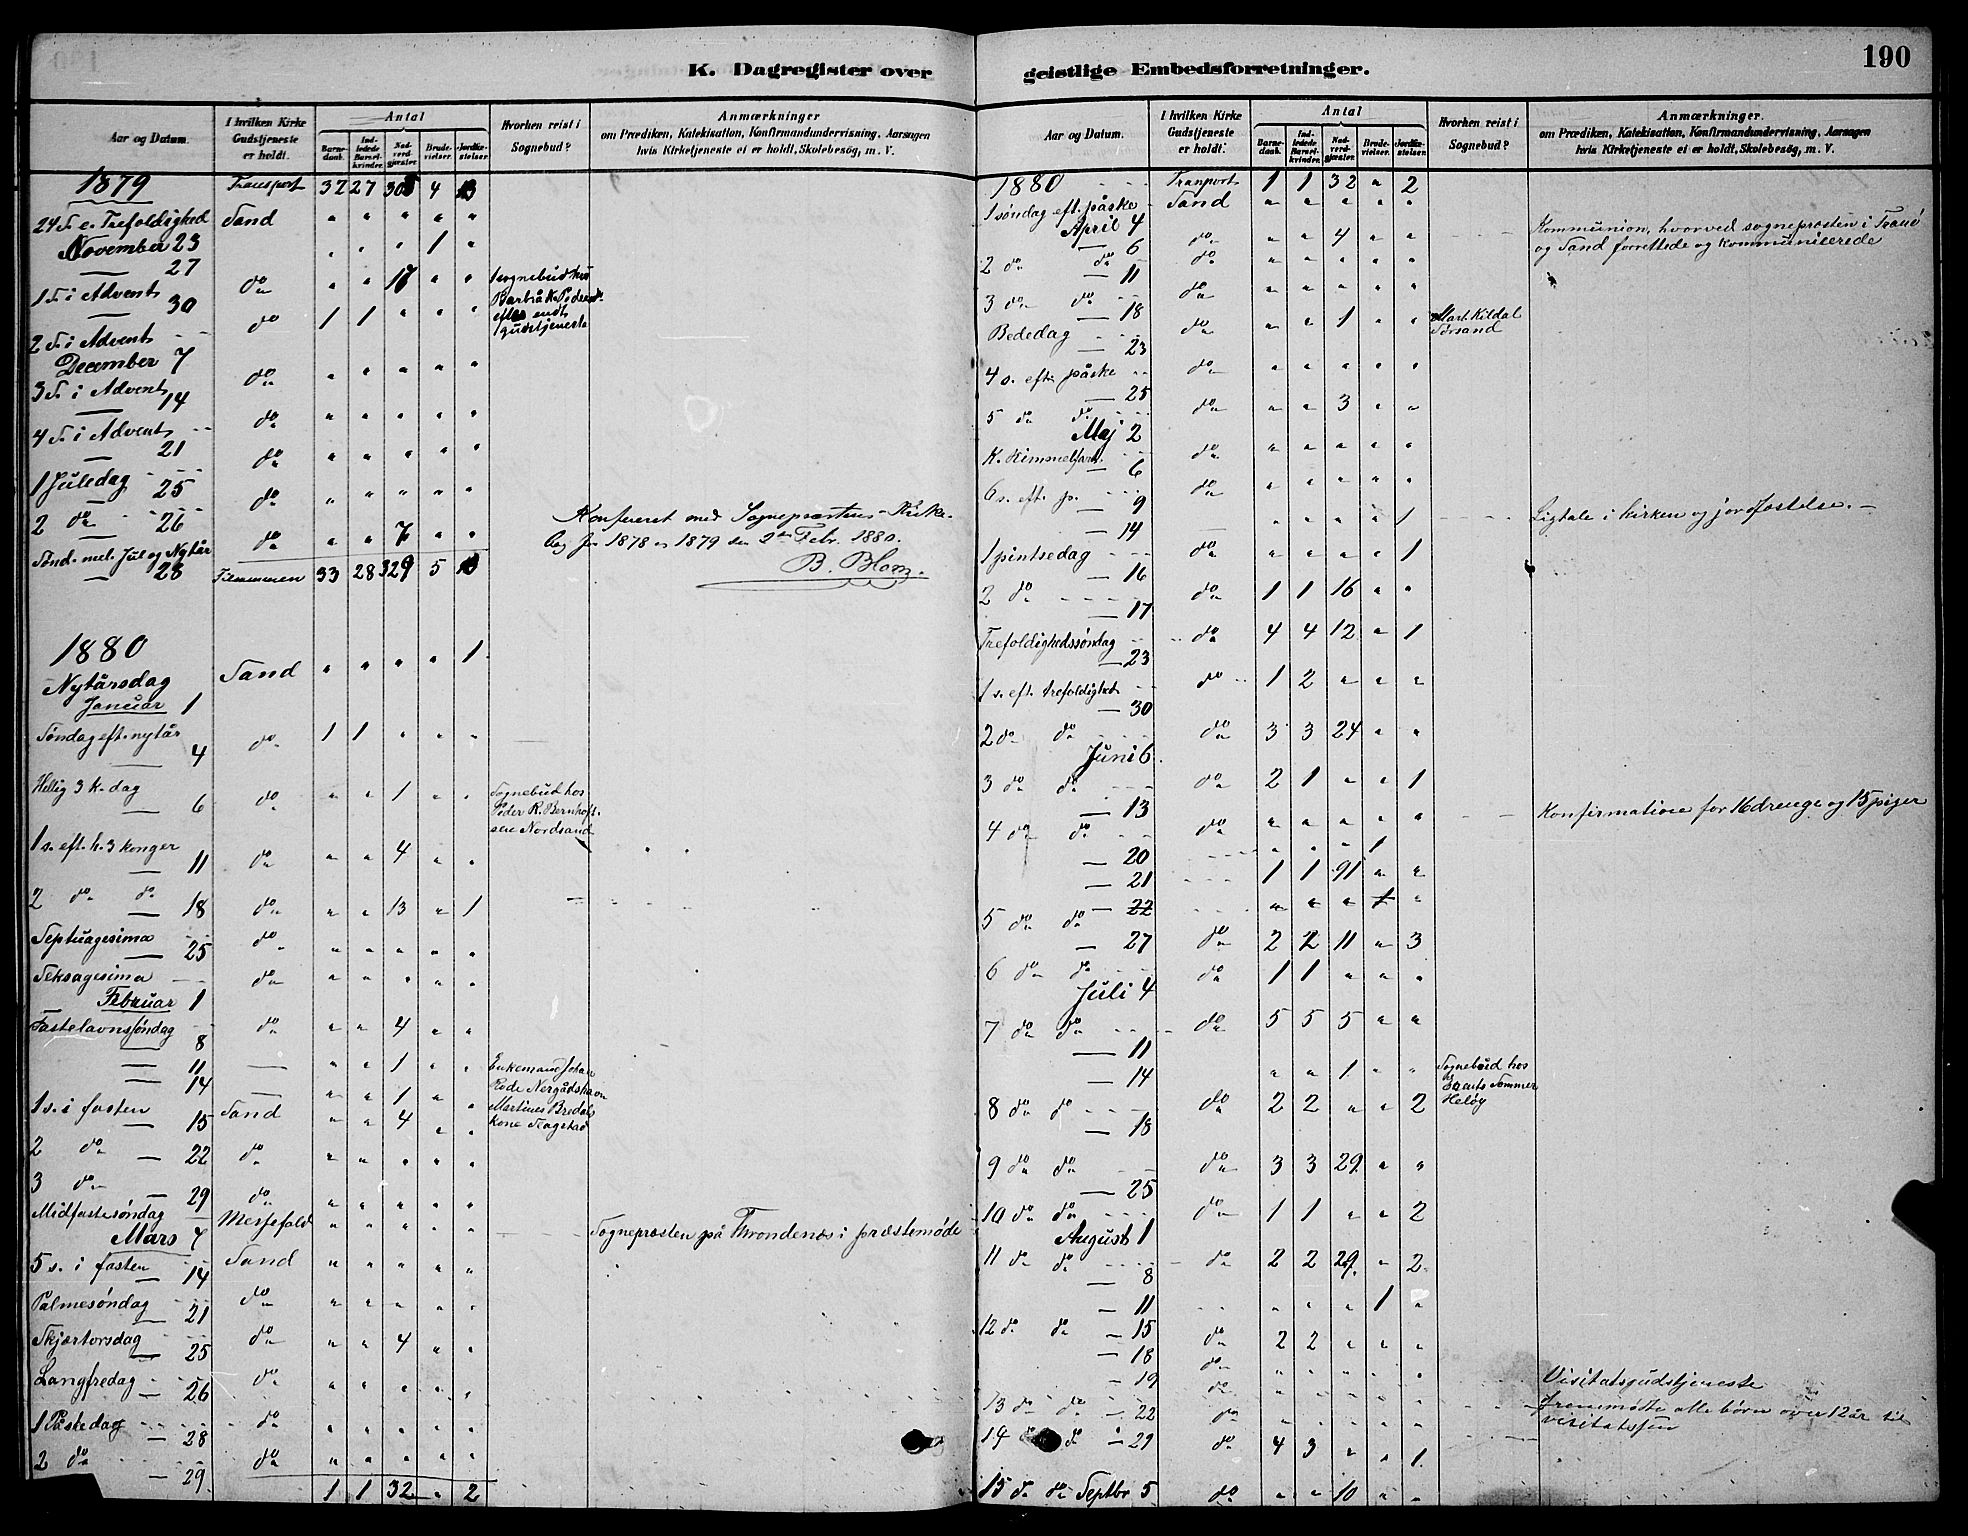 190
K. Dagregister over
geistlige Embedsforretninger.
Aar og Datum.
I hvilken Kirke Gudstjeneste er holdt.
Antal
Barne-daab. Ind-ledede Barsel-kvinder. Nad-verd-gjæster. Brude-vielser. Jordfæ-stelser.
Hvorhen reist i Sognebud?
Anmærkninger
om Prædiken, Katekisation, Konfirmandundervisning. Aarsagen
hvis Kirketjeneste ei er holdt, Skolebesøg, m. V.
1879 Transport 32 27 4
24 S. e. Trefoldighed Sand " " " " "
November 23 " " " 1 "
27
1 S. i Advent do " " " "
30
2 S. i Advent do 1 1 " " "
December 7
3 S. i Advent do " " " " "
14
4 S. i Advent do " " " " "
21
1 Juledag do " " " " "
25
2 do 26 do " " " " "
Sønd. mel. Jul og Nytår do " " 7 " "
28
33 28 329 5
Konfereret med Sognepræstens Kirke-
bog for 1878 og 1879 den 2den Febr. 1880.
B. Blom.
1880
Nytårsdag Sand " " " " 1
Januar 1
Søndag eft. nytår do 1 1 " " "
4
Hellig 3 k. dag do " " 1 " " Sognebud hos
6 Peder R. Bernhoft-
sen Nordsand
1 s. eft. h. 3 konger do " " 4 " "
11
2 do do 18 do " " 13 " 1
Septuagesima do " " " " "
25
Seksagesima do " " " " "
Februar 1
Fastelavnssøndag do " " 4 " "
8
11 " " 1 " " Enkemand Johan
14 " " 1 " "
1 s. i fasten Sand " " 4 " " Martines Bredals
15 kone
2 do 22 do " " " " "
3 do 29 do " " " " "
Midfastesøndag Messefald " " " " " Sognepresten på Throndenes i præstemøde
Mars 7
5 s. i fasten Sand " " " " "
14
Palmesøndag do " " " " "
21
Skjærtorsdag do " " 4 " "
25
Langfredag do " " " " "
26
1 Påskedag do " " " " "
28
2 do do " " " " "
29
1 1 32 " 2
Aar og Datum.
I hvilken Kirke Gudstjeneste er holdt.
Antal
Barne-daab. Ind-ledede Barsel-kvinder. Nad-verd-gjæster. Brude-vielser. Jordfæ-stelser.
Hvorhen reist i Sognebud?
Anmærkninger.
om Prædiken, Katekisation, Konfirmandundervisning, Aarsagen
hvis Kirketjeneste ei er holdt, Skolebesøg, m. V.
1880 Tranport 1 1 32 " 2
1 søndag eft. påske Sand " " " " "
April 4
6 do " " 4 " " Kommunion, hvorved sognepræsten i Tranø
og Sand forrettede og kommunicerede
2 do do 11 do " " " " "
3 do do 18 do " " " " "
Bededag do " " 1 " " Mart. Kildal
23
4 s. eft. påske do " " " " "
25
5 do do do " " 3 " "
Maj 2
K. Himmelfart. do " " " " "
6
6 s. eft. p. do " " " " "
9
14 " " " " 1 Ligtale i kirken og jordfæstelse.
1 pintsedag do " " " " 1
16
2 do do 1 1 16 " "
17
Trefoldighedssøndag do 4 4 12 " 1
23
1 s. eft. trefoldighet do 1 2 " " "
30
2 do do do 3 3 24 " "
Juni 6
3 do do do 2 1 " " 1
13
4 do do do " " " " " Konfirmation for 16 drenge og 15 piger
20 " " " 1
21 1 1 91 " "
22 " " " 1 "
5 do do 27 do 2 2 11 " 3
6 do do do 1 1 " " "
Juli 4
7 do do do 5 5 5 " "
11
14 " " 1 " " Sognebud hos
Heløy
8 do do do 2 2 " " 2
18
9 do do do 3 3 29 " "
25
10 do do do 1 1 " " 2
August 1
11 do do do 2 2 29 " 2
8
11 " " " 1 "
12 do do 15 do 2 2 " " "
18 do " " " " "
19 do " " " " " Visitatsgudstjeneste
13 do do 22 do " " " " " Fremmøtte alle børn over 12 år til
visitatsen
14 do do 29 do 4 3 " " 1
15 do do Septbr 5 do " " 10 " "